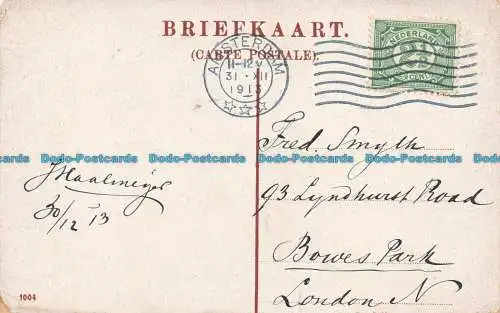 BRIEFKAART.
(CARTE POSTALE).
AMSTERDAM
11-12 V
31 · XII
1913
NEDERLAND
2½
CENT
Fred. Smyth
93 Lyndhurst Road
Bowes Park
London N
J Haalmeijer
30/12 '13
1004
Dodo-Postcards Dodo-Postcards Dodo-Postcards Dodo-Postcards
Dodo-Postcards Dodo-Postcards Dodo-Postcards Dodo-Postcards